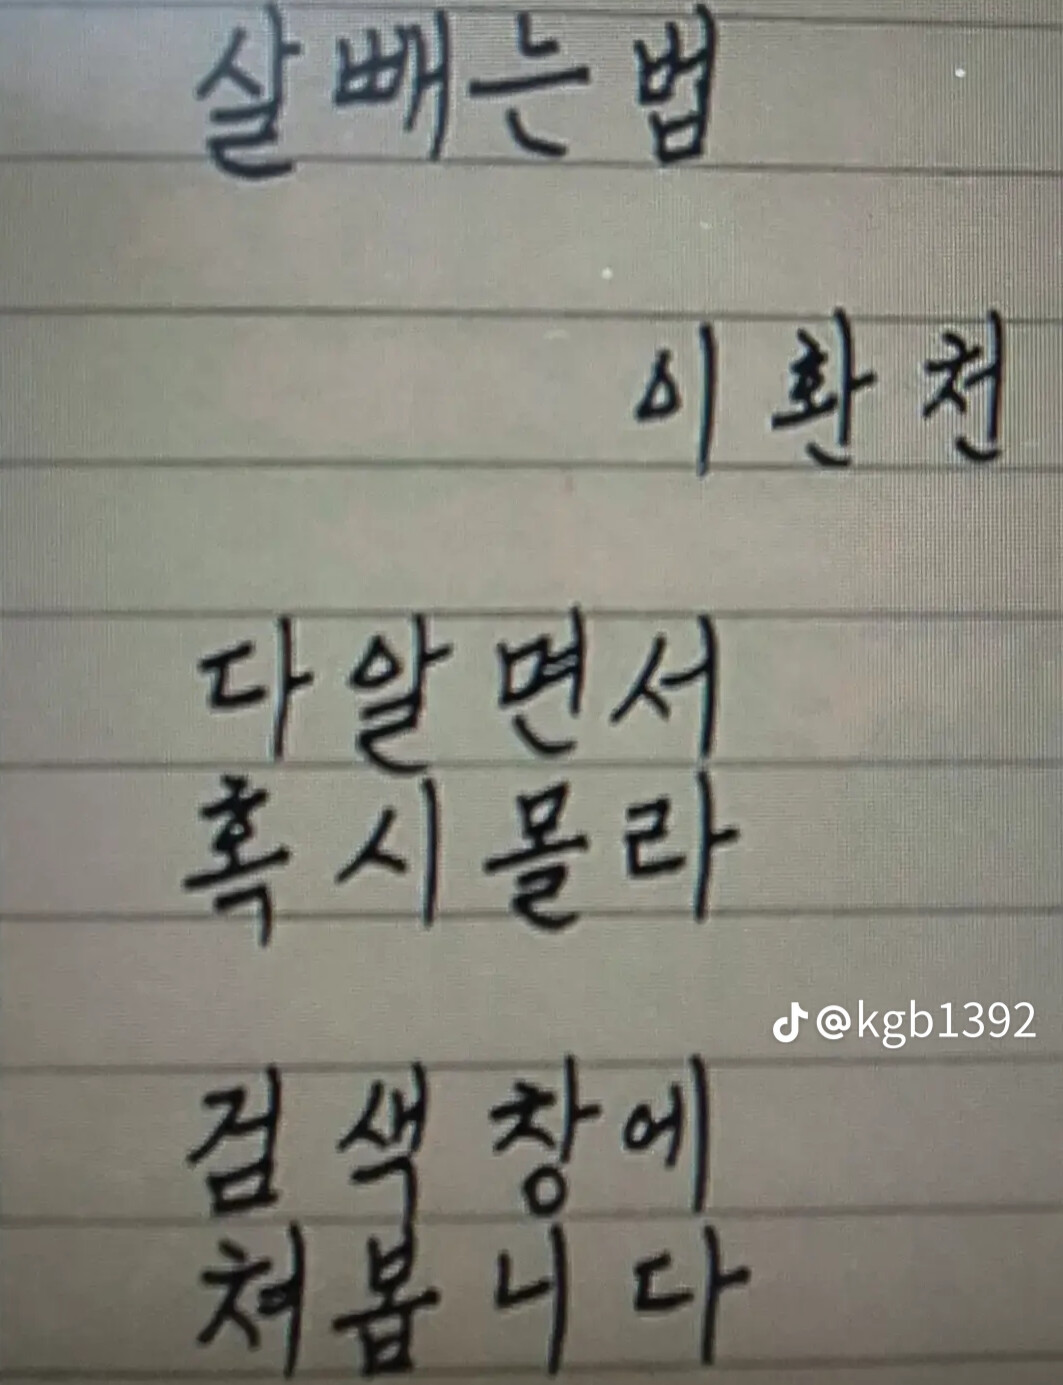 살빼는법
이환천
다알면서
혹시몰라
@kgb1392
검색창에
쳐봅니다